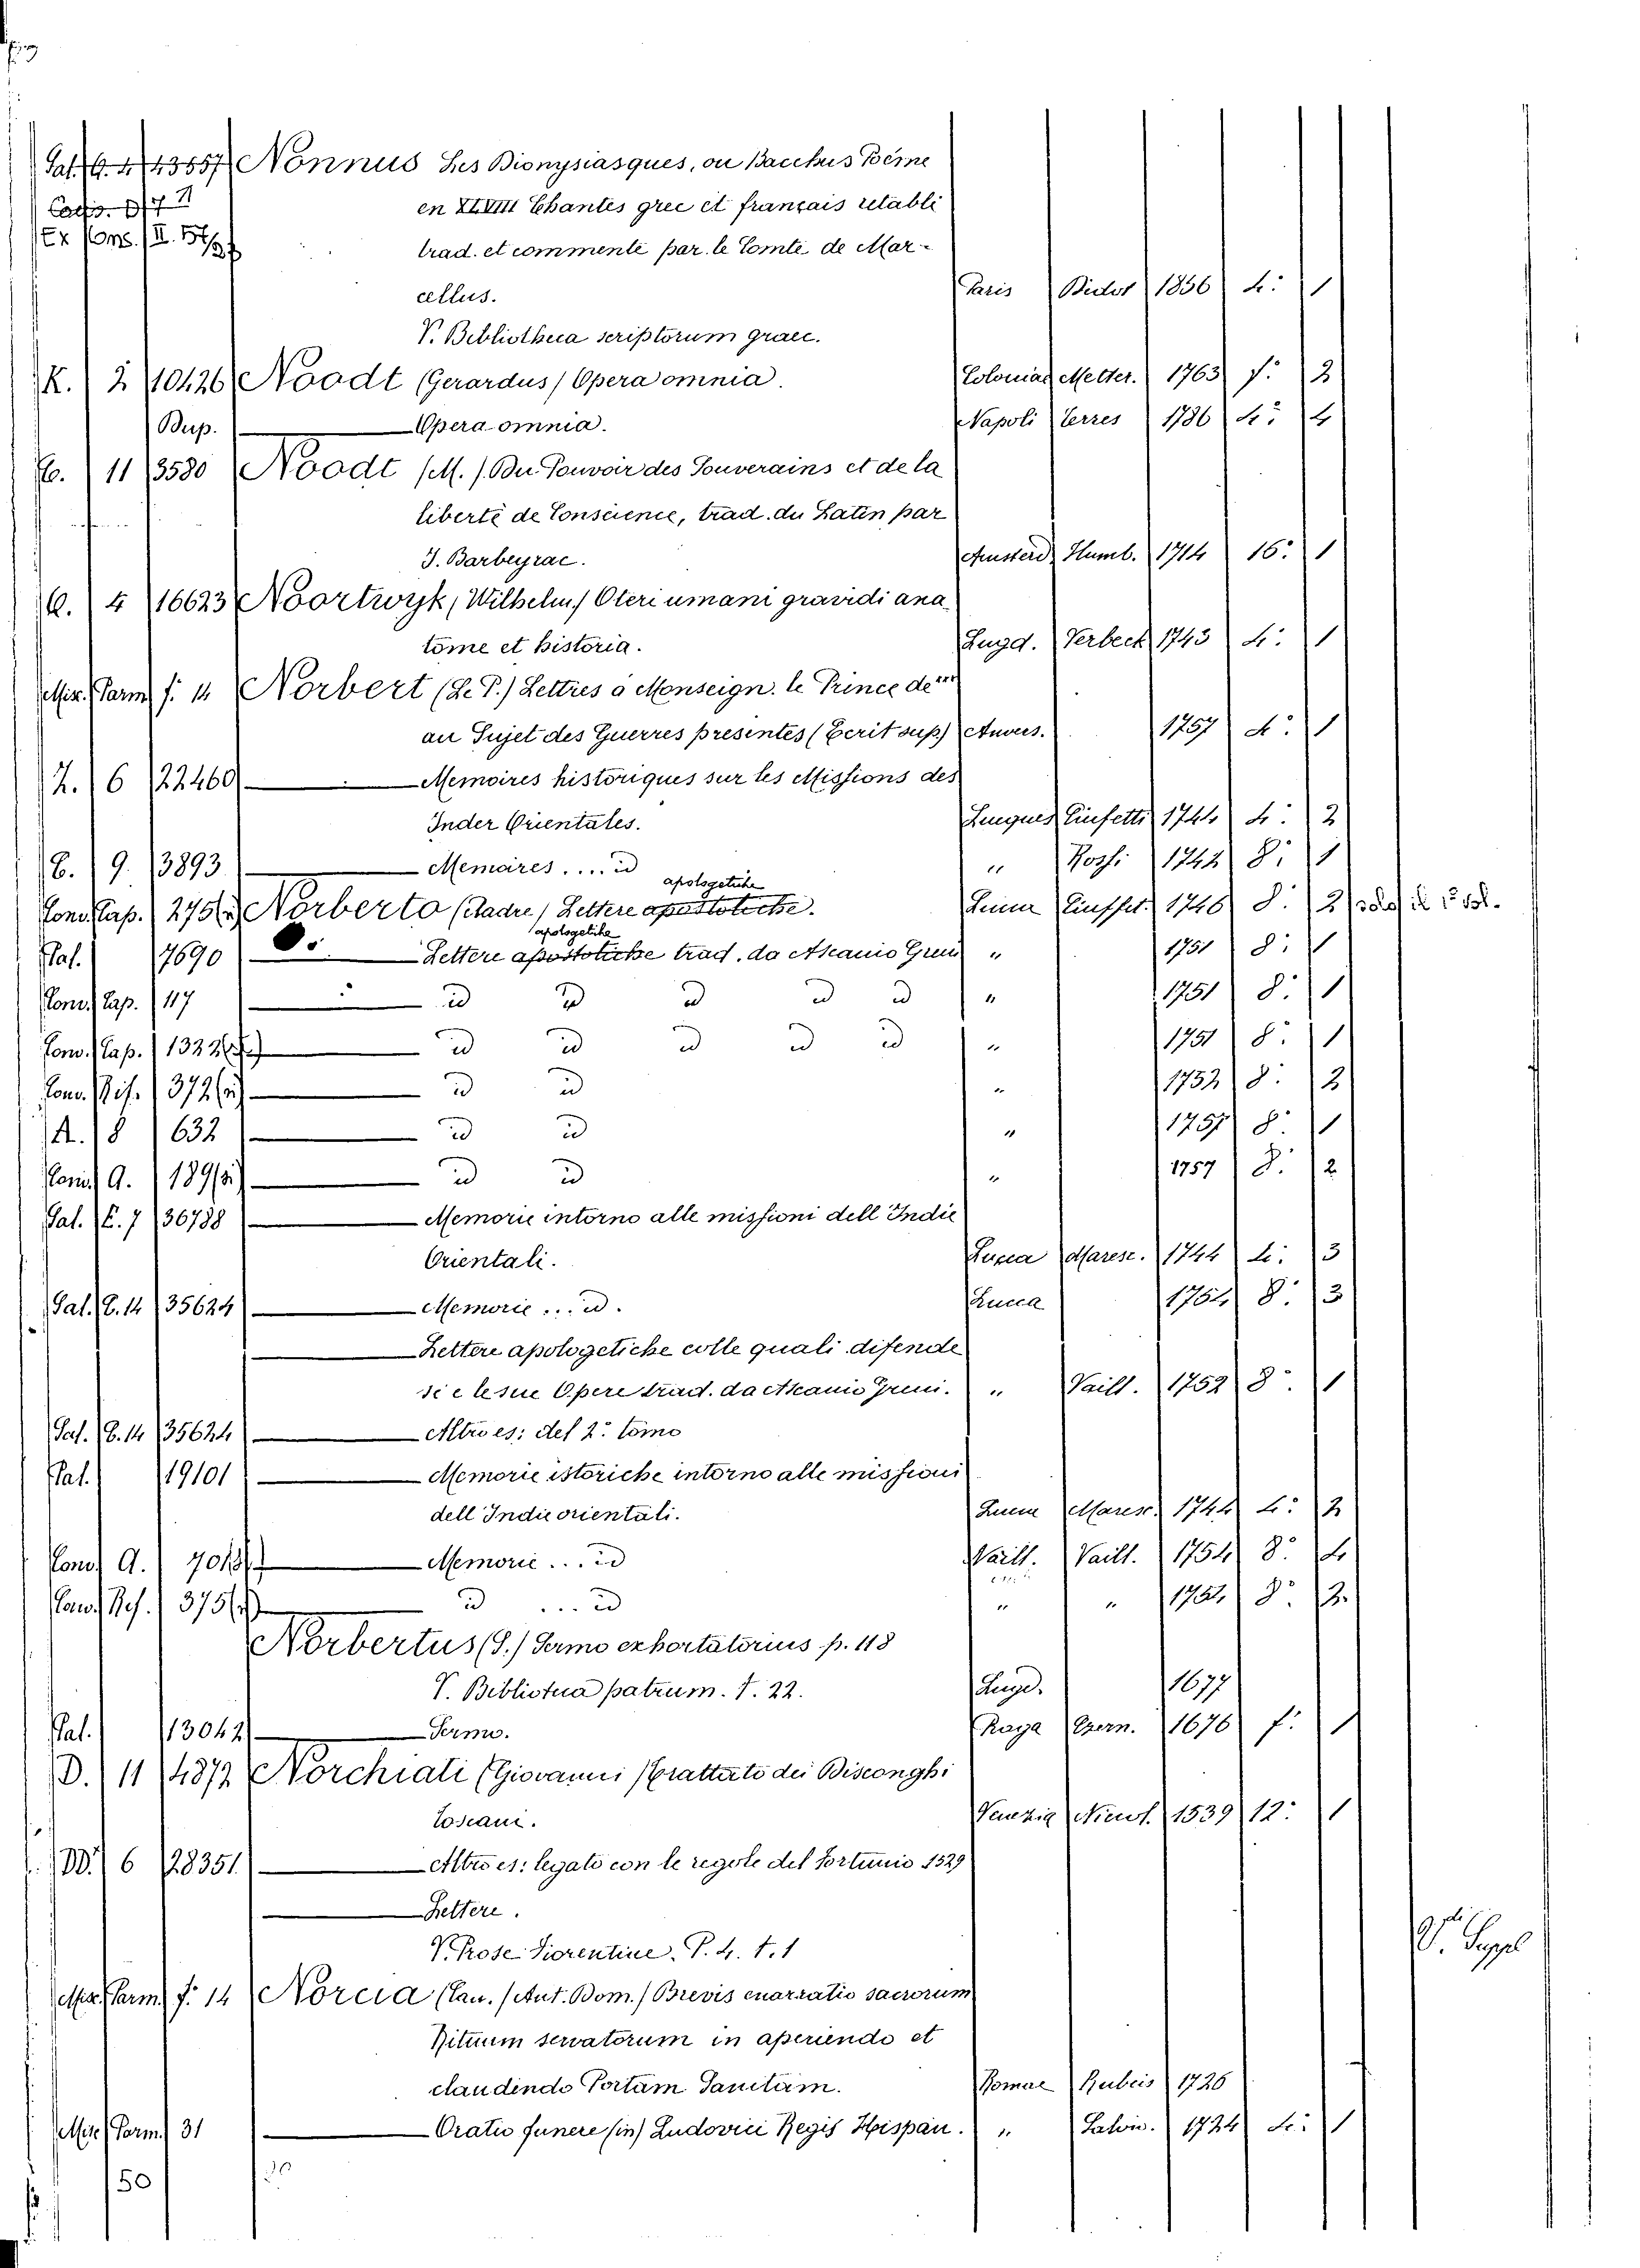 Pal. G. 4 43557 Nonnus Les Dionysiasques, ou Bacchus Poëme
en XLVIII Chantes grec et français retabli
Ex Cons. II.
trad. et commenté par le Comte de Mar-
cellus. Paris Didot 1856 4: 1
V. Bibliotheca scriptorum graec.
K. 2 10426 Noodt (Gerardus) Opera omnia. Coloniae Metter. 1763 f: 2
Dup. Opera omnia. Napoli Terres 1786 4: 4
C. 11 3580 Noodt (M.) Du Pouvoir des Souverains et de la
liberté de Conscience, trad. du Latin par
J. Barbeyrac. Amsterd. Humb. 1714 16: 1
Q. 4 16623 Noortwyk (Wilhelm) Uteri umani gravidi ana
tome et historia. Lugd. Verbeck 1743 4: 1
Mix. Parm. f: 14 Norbert (Le P.) Lettres a Monseign. le Prince de ***
au Sujet des Guerres presentes (Ecrit sup.) Anvers. 1757 4: 1
Z. 6 22460 Memoires historiques sur les Missions des
Inder Orientales. Lucques Ciuffetti 1744 4: 2
C. 9. 13893 Memoires .... id " Rossi 1742 8: 1
apologetiche
Cons. Cap. 275 Norberto (Padre) Lettere apostoliche. Lucca Ciuffet. 1746 8: 2 solo il 1º vol.
apologetiche
Pal. 17690 Lettere apostoliche trad. da Ascanio Greni " 1751 8: 1
Cons. Cap. 117 id id id id id " 1751 8: 1
Conv. Cap. 1322 id id id id id " 1751 8: 1
Conv. Rif. 372 id id " 1752 8: 2
A. 8 632 id id " 1757 8: 1
Conv. A. 189 id id " 1757 8: 2
Pal. E. 7 36788 Memorie intorno alle missioni dell Indie
Orientali. Lucca Maresc. 1744 4: 3
Pal. C. 14 35624 Memorie ... id. Lucca 1754 8: 3
Lettere apologetiche colle quali difende
si e le sue Opere trad. da Ascanio Greni. " Vaill. 1752 8: 1
Pal. C. 14 35624 Altro es: del 2º tomo
Pal. 19101 Memorie istoriche intorno alle missioni
dell Indie orientali. Lucca Maresc. 1744 4: 2
Conv. A. 701 Memorie ... id Vaill. Vaill. 1754 8: 4
Conv. Rif. 375 id ... id " " 1754 8: 2
Norbertus (S.) Sermo exhortatorius p. 118
V. Biblioteca patrum. t. 22. Lugd. 1677
Pal. 13042 Sermo. Praga Czern. 1676 f: 1
D. 11 4872 Norchiati (Giovanni) Trattato dei Disconghi
toscani. Venezia Nicol. 1539 12: 1
DD. 6 28351 Altro es: legato con le regole del Fortunio 1529
Lettere.
V. Prose Fiorentine. P. 4. t. 1
V. Suppl
Mix. Parm. f: 14 Norcia (Can. Ant. Dom.) Brevis enarratio sacrorum
Rituum servatorum in aperiendo et
claudendo Portam Sanctam. Romae Rubeis 1726
Mix. Parm. 31 Oratio funere (in) Ludovici Regis Hispan. " Salvio. 1724 4: 1
50 30